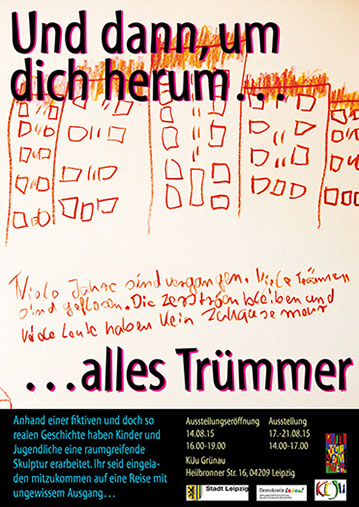 Und dann, um
dich herum...
Viele Jahre sind vergangen. Viele Tränen
sind geflossen. Die zerstörten bleiben und
viele Leute haben kein Zuhause mehr
...alles Trümmer
Anhand einer fiktiven und doch so
realen Geschichte haben Kinder und
Jugendliche eine raumgreifende
Skulptur erarbeitet. Ihr seid eingela-
den mitzukommen auf eine Reise mit
ungewissem Ausgang...
Ausstellungseröffnung
14.08.15
16.00-19.00
Ausstellung
17.-21.08.15
14.00-17.00
KiJu Grünau
Heilbronner Str. 16, 04209 Leipzig
Stadt Leipzig
Demokratie leben!
KiJu